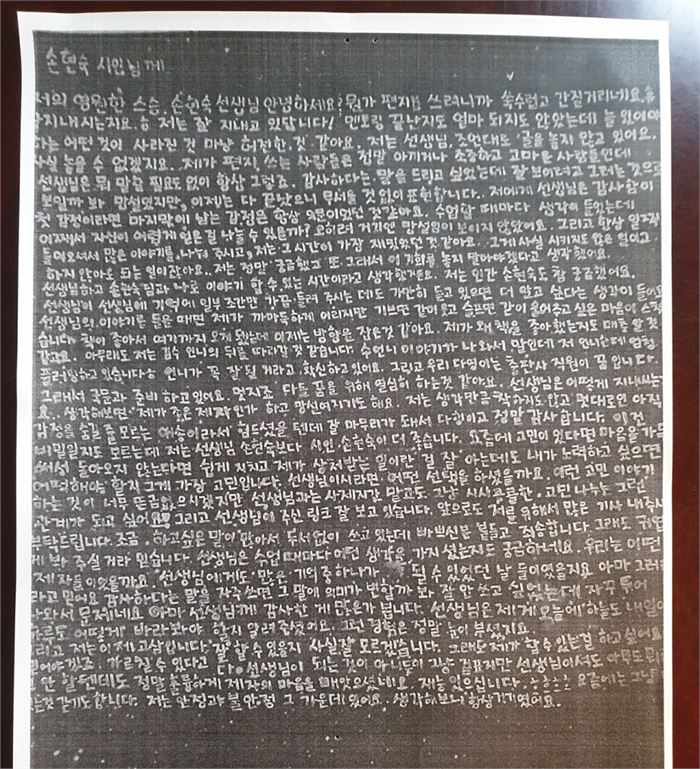 손현숙 시인님께
저의 영원한 스승, 손현숙 선생님 안녕하세요? 뭔가 편지를 쓰려니까 쑥스럽고 간질거리네요.ㅎ
잘 지내시는지요. 저는 잘 지내고 있답니다! 멘토링 끝난지도 얼마 되지도 안았는데 늘 있어야
하는 어떤 것이 사라진 것 마냥 허전한 것 같아요. 저는 선생님 조언대로 글을 놓지 않고 있어요.
사실 놓을 수 없겠지요. 제가 편지 쓰는 사람들은 정말 아끼거나 소중하고 고마운 사람들인데
선생님은 뭐 말할 필요도 없이 항상 그렇죠. 감사하다는 말을 드리고 싶었는데 잘 보이려고 그러는 것으로
보일까 봐 망설였지만, 이제는 다 끝났으니 무서울 것 없이 표현합니다. 저에게 선생님은 감사함이
첫 감정이라면 마지막에 남는 감정은 항상 의문이었던 것 같아요. 수업할 때마다 생각이 들었는데
자신이 어렵게 얻은 걸 나눌 수 있을까? 오히려 거기엔 망설임이 보이지 않았어요. 그리고 항상 일찍
들어오셔서 많은 이야기를 나눠 주시고, 저는 그 시간이 가장 재밌었던 것 같아요. 그게 사실 시키지도 않은 일이고
하지 않아도 되는 일이잖아요. 저는 정말 궁금했고 또 그래서 이 기회를 놓지 말아야겠다고 생각했어요.
선생님하고 손현숙님과 나로 이야기 할 수 있는 시간이라고 생각했거든요. 저는 인간 손현숙도 참 궁금했어요.
선생님이 선생님 기억에 일부 조각만 가끔 들려 주시는 데도 가만히 듣고 있으면 더 알고 싶다는 생각이 들어요
선생님의 이야기를 들을 때면 제가 까마득하게 어리지만 기쁘면 같이 웃고 슬프면 같이 울어주고 싶은 마음이
습니다. 책이 좋아서 여기까지 오게 됐는데 이제는 방향을 잡은 것 같아요. 제가 왜 책을 좋아했는지도 대충 알 것
같고요. 아무래도 저는 수 언니의 뒤를 따라갈 것 같습니다. 수 언니 이야기가 나와서 말인데 저 언니는 엄청
있습니다ㅎ 언니가 꼭 잘 될 거라고 확신하고 있어요. 그리고 우리 다영이는 출판사 직원이 꿈입니다.
그래서 국문과 준비 하고 있어요. 멋지죠. 다들 꿈을 위해 열심히 하는 것 같아요. 선생님은 어떻게 지내시는
요. 생각해보면 제가 좋은 제자인가 하고 망설여지기도 해요. 저는 생각만큼 착하지도 않고 멋대로인 아직
감정을 숨길 줄 모르는 애송이라서 힘드셨을 텐데 잘 마무리가 돼서 다행이고 정말 감사합니다. 이건
비밀일지도 모르는데 저는 선생님 손현숙보다 시인 손현숙이 더 좋습니다. 요즘에 고민이 있다면 마음을 가득
써서 돌아오지 않는다면 쉽게 지치고 제가 상처받는 일이란 걸 잘 아는데도 내가 노력하고 싶으면
어떻게 해야 할지 그게 가장 고민입니다. 선생님이시라면 어떤 선택을 하셨을까요. 이런 고민 이야기
하는 것이 너무 뜬금없으시겠지만 선생님과는 사제지간 말고도 그냥 시시콜콜한 고민 나누는 그런
관계가 되고 싶어요. 그리고 선생님이 주신 링크 잘 보고 있습니다. 앞으로도 저를 위해서 많은 기사 내주시
부탁드립니다. 조금 하고싶은 말이 많아서 두서없이 쓰고 있는데 바쁘신분 붙들고 죄송합니다. 그래도 귀엽
게 봐 주실 거라 믿습니다. 선생님은 수업 때마다 어떤 생각을 가지셨는지도 궁금하네요. 우리는 어떤
제자들이었을까요. 선생님에게도 많은 기억 중 하나가 될 수 있었던 날들이였을지요 아마 그러리
라고 믿어요 감사하다는 말을 자주쓰면 그 말에 의미가 변할까 봐 잘 안 쓰고 싶었는데 자꾸 튀어
나와서 문제네요. 아마 선생님께 감사한 게 많은가 봅니다. 선생님은 제게 오늘에 하늘도 내일에
하루도 어떻게 바라봐야 할지 알려준셨어요. 그런 경험은 정말 눈이 부셨지요.
그리고 저는 이제 고삼입니다 잘 할 수 있을지 사실 잘 모르겠습니다. 그래도 제가 할 수 있는걸 하고 싶어요
가르칠 수 있다고 다 선생님이 되는 것이 아닌
안 할텐데도 정말 훌륭하게 제자의 마음을 빼앗으셨네요. 재능 있으십니다. 요즘에는 그냥
있는것 같기도 합니다. 저는 안정과 불안정 그 가운데 있어요. 생각해보니 항상 거기였어요.